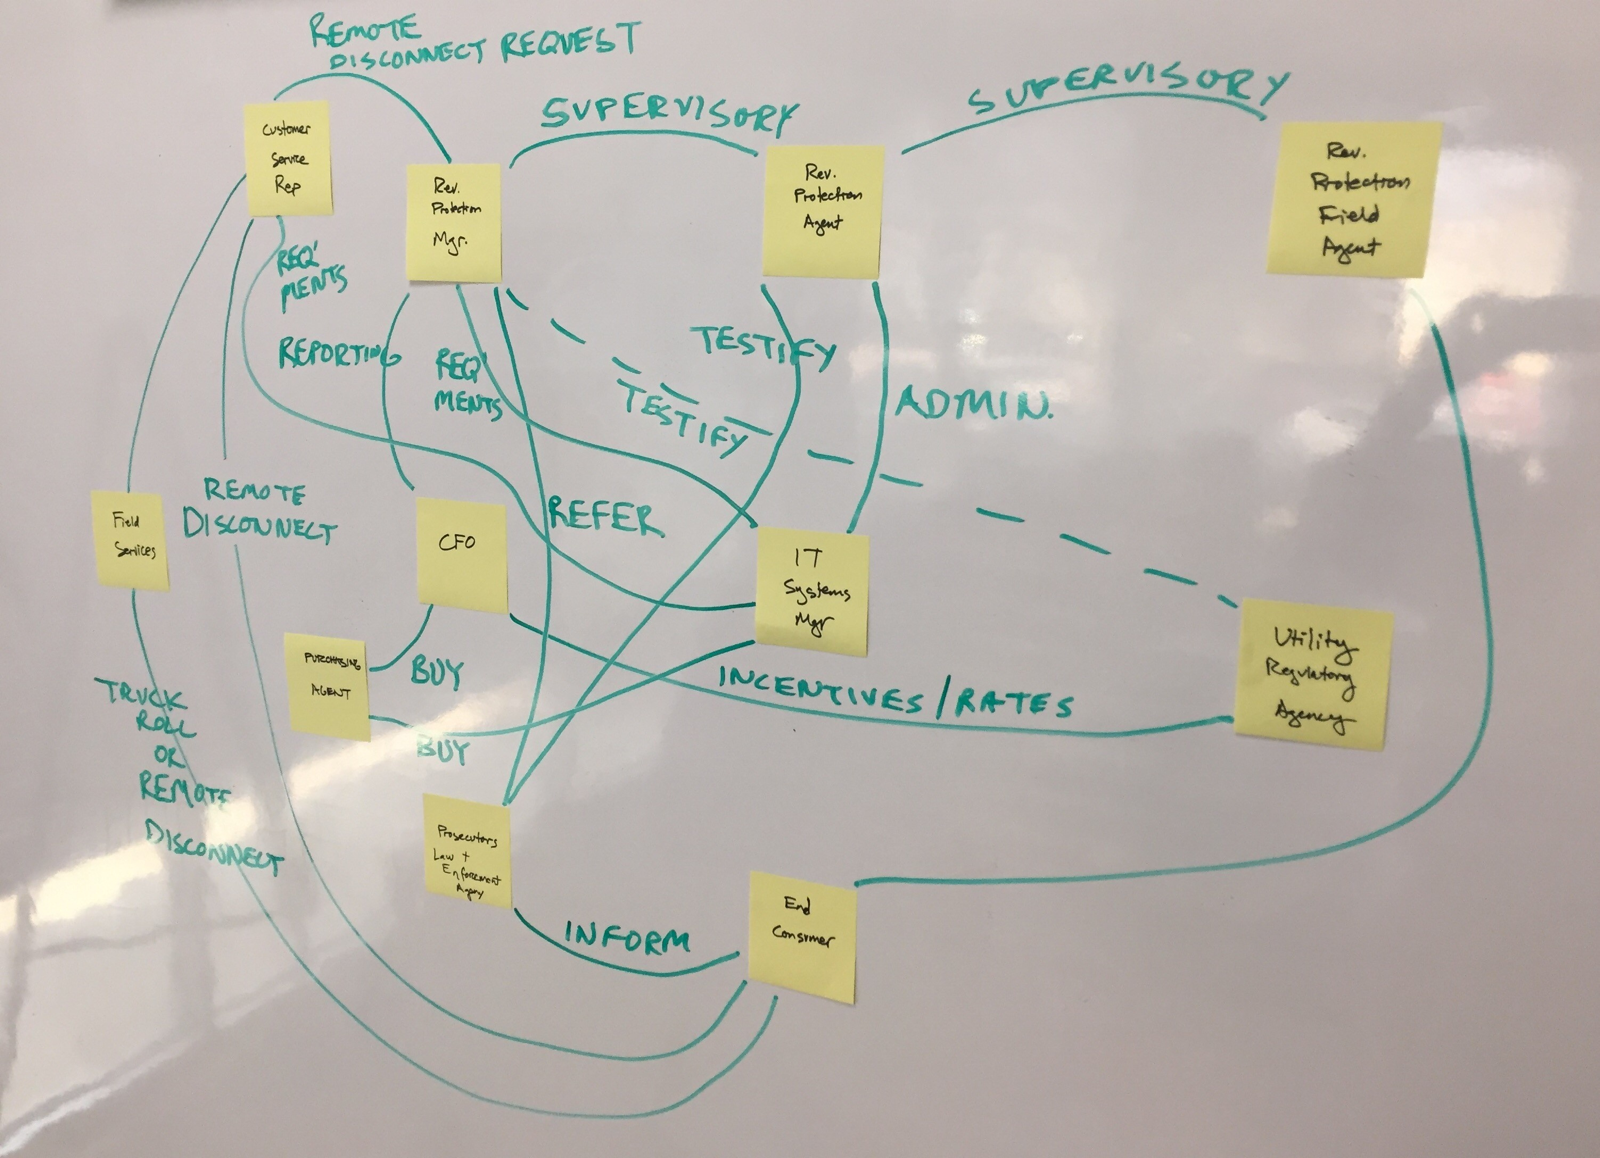 REMOTE
DISCONNECT REQUEST
SUPERVISORY
SUPERVISORY
Customer
Service
Rep
Rev.
Protection
Mgr.
Rev.
Protection
Agent
Rev.
Protection
Field
Agent
REQ'
MENTS
REPORTING
REQ'
MENTS
TESTIFY
TESTIFY
ADMIN.
REMOTE
DISCONNECT
REFER
Field
Services
CFO
IT
Systems
Mgr
Utility
Regulatory
Agency
PURCHASING
AGENT
BUY
BUY
INCENTIVES/RATES
TRUCK
ROLL
OR
REMOTE
DISCONNECT
Prosecutors
Law +
Enforcement
Agency
INFORM
End
Consumer